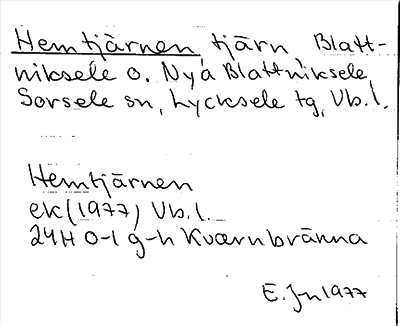 Hemtjärnen, tjärn, Blatt-
niksele o. Nya Blattniksele,
Sorsele sn, Lycksele tg, Vb.l.
Hemtjärnen
ek (1977) Vb.l.
24H 0-1 g-h Kvarnbränna
E. Jn 1977